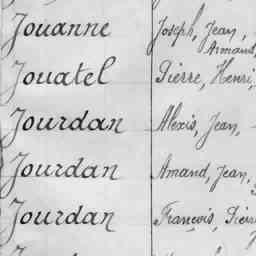 Jouanne Joseph, Jean,
Armand
Jouatel Pierre, Henri,
Jourdan Alexis, Jean,
Jourdan Amand, Jean,
Jourdan François, Pierr